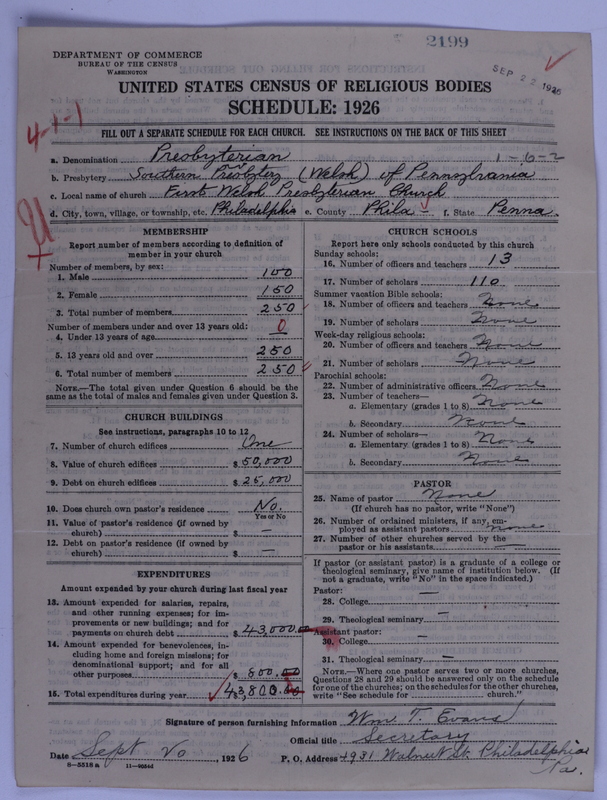 2199
SEP 22 1926
DEPARTMENT OF COMMERCE
BUREAU OF THE CENSUS
WASHINGTON
UNITED STATES CENSUS OF RELIGIOUS BODIES
SCHEDULE: 1926
4-1-1
FILL OUT A SEPARATE SCHEDULE FOR EACH CHURCH. SEE INSTRUCTIONS ON THE BACK OF THIS SHEET
a. Denomination Presbyterian 1-6-2
b. Presbytery Southern Presbytery (Welsh) of Pennsylvania
c. Local name of church First Welsh Presbyterian Church
d. City, town, village, or township, etc. Philadelphia e. County Phila - f. State Penna.
MEMBERSHIP
Report number of members according to definition of
member in your church
Number of members, by sex:
1. Male 100
2. Female 150
3. Total number of members 250
Number of members under and over 13 years old: 0
4. Under 13 years of age
5. 13 years old and over 250
6. Total number of members 250
NOTE.—The total given under Question 6 should be the
same as the total of males and females given under Question 3.
CHURCH BUILDINGS
See instructions, paragraphs 10 to 12
7. Number of church edifices One
8. Value of church edifices $ 50,000
9. Debt on church edifices $ 25,000
10. Does church own pastor's residence No.
Yes or No
11. Value of pastor's residence (if owned by
church) $ —
12. Debt on pastor's residence (if owned by
church) $ —
EXPENDITURES
Amount expended by your church during last fiscal year
13. Amount expended for salaries, repairs,
and other running expenses; for im-
provements or new buildings; and for
payments on church debt $ 43,000.00
14. Amount expended for benevolences, in-
cluding home and foreign missions; for
denominational support; and for all
other purposes $ 800.00
15. Total expenditures during year $ 43,800.00
CHURCH SCHOOLS
Report here only schools conducted by this church
Sunday schools:
16. Number of officers and teachers 13
17. Number of scholars 110
Summer vacation Bible schools:
18. Number of officers and teachers None
19. Number of scholars None
Week-day religious schools:
20. Number of officers and teachers None
21. Number of scholars None
Parochial schools:
22. Number of administrative officers None
23. Number of teachers—
a. Elementary (grades 1 to 8) None
b. Secondary None
24. Number of scholars—
a. Elementary (grades 1 to 8) None
b. Secondary None
PASTOR
25. Name of pastor None
(If church has no pastor, write "None")
26. Number of ordained ministers, if any, em-
ployed as assistant pastors None
27. Number of other churches served by the
pastor or his assistants —
If pastor (or assistant pastor) is a graduate of a college or
theological seminary, give name of institution below. (If
not a graduate, write "No" in the space indicated.)
Pastor:
28. College —
29. Theological seminary —
Assistant pastor:
30. College —
31. Theological seminary —
NOTE.—Where one pastor serves two or more churches,
Questions 28 and 29 should be answered only on the schedule
for one of the churches; on the schedules for the other churches,
write "See schedule for church."
Signature of person furnishing information Wm. T. Evans
Official title Secretary
Date Sept 20, 1926 P. O. Address 4931 Walnut St. Philadelphia
Pa.
8-5518 a